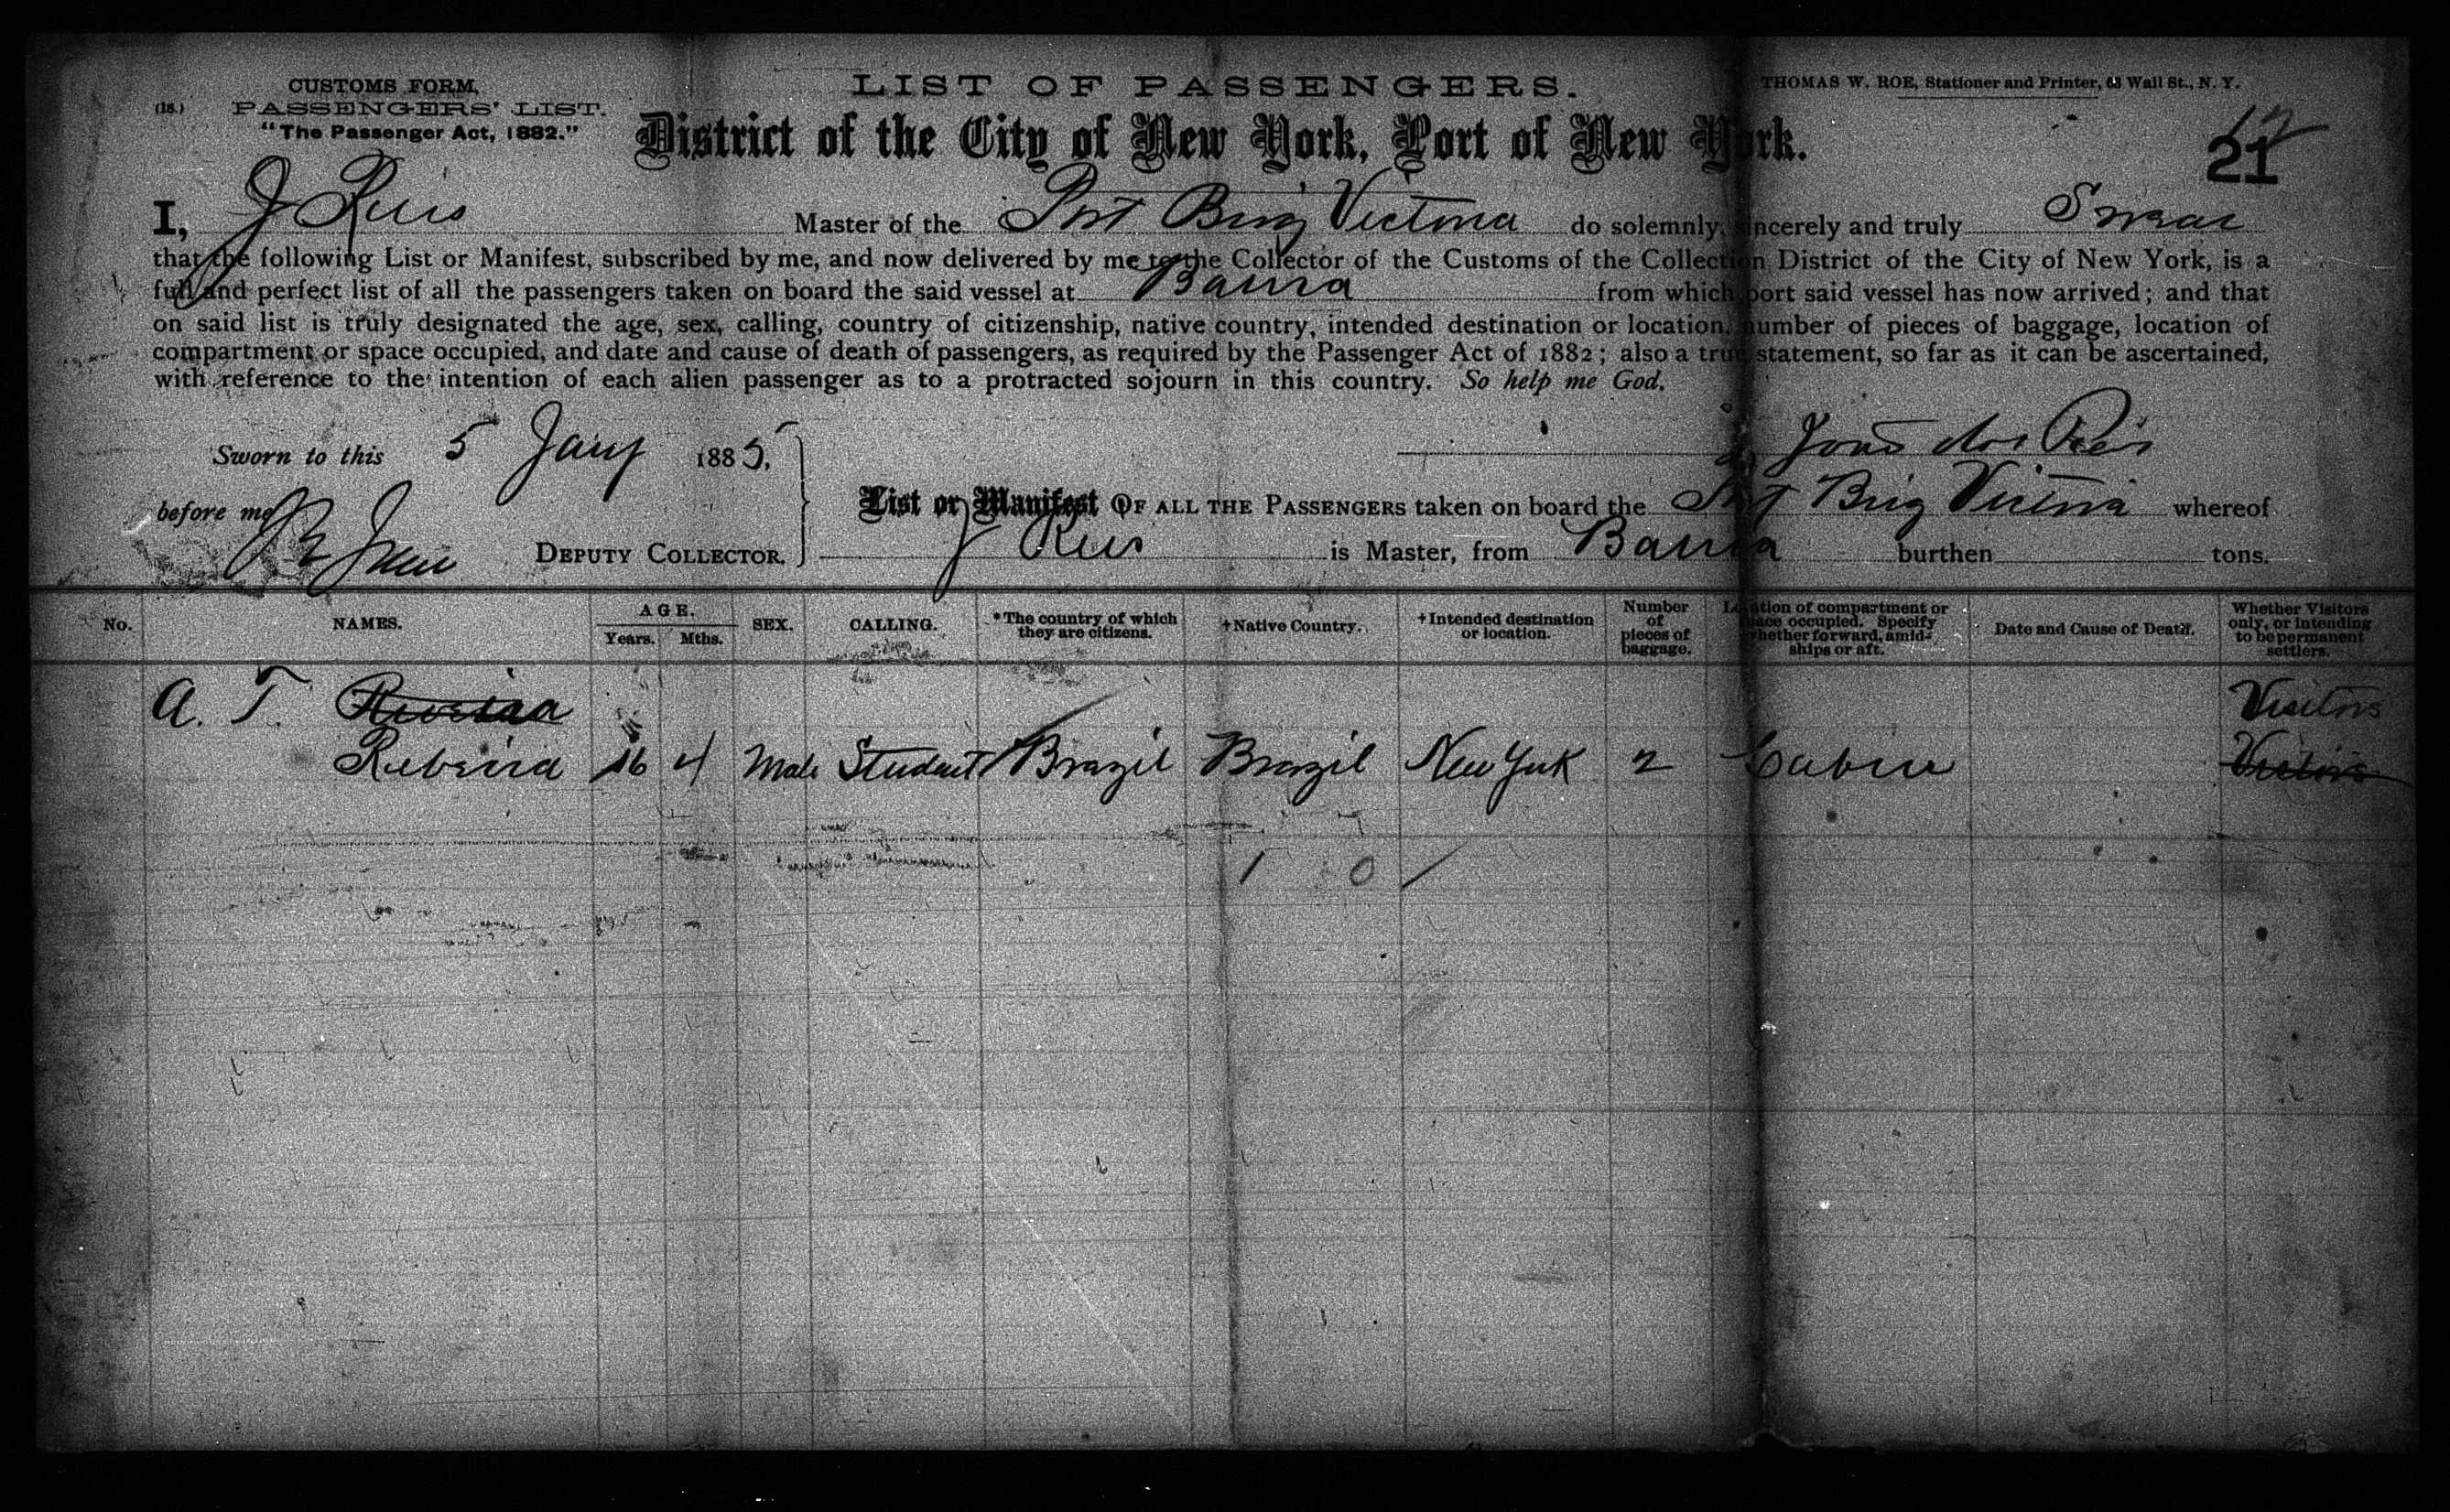 CUSTOMS FORM.
(18.) PASSENGERS' LIST.
"The Passenger Act, 1882."
LIST OF PASSENGERS.
THOMAS W. ROE, Stationer and Printer, 63 Wall St., N. Y.
District of the City of New York, Port of New York.
12
21
I, J Reis Master of the Port Brig Victoria do solemnly, sincerely and truly Swear
that the following List or Manifest, subscribed by me, and now delivered by me to the Collector of the Customs of the Collection District of the City of New York, is a
full and perfect list of all the passengers taken on board the said vessel at Bahia from which port said vessel has now arrived; and that
on said list is truly designated the age, sex, calling, country of citizenship, native country, intended destination or location, number of pieces of baggage, location of
compartment or space occupied, and date and cause of death of passengers, as required by the Passenger Act of 1882; also a true statement, so far as it can be ascertained,
with reference to the intention of each alien passenger as to a protracted sojourn in this country. So help me God.
Sworn to this 5 Jany 1885,
João dos Reis
before me
DEPUTY COLLECTOR.
List or Manifest OF ALL THE PASSENGERS taken on board the Port Brig Victoria whereof
J Reis is Master, from Bahia burthen tons.
No. NAMES. AGE. Years. Mths. SEX. CALLING. *The country of which they are citizens. +Native Country. +Intended destination or location. Number of pieces of baggage. Location of compartment or space occupied. Specify whether forward, amidships or aft. Date and Cause of Death. Whether Visitors only, or intending to be permanent settlers.
A. T. Visitors
Rebeiria 16 4 Male Student Brazil Brazil New York 2 Cabin Visitors
1 0 /